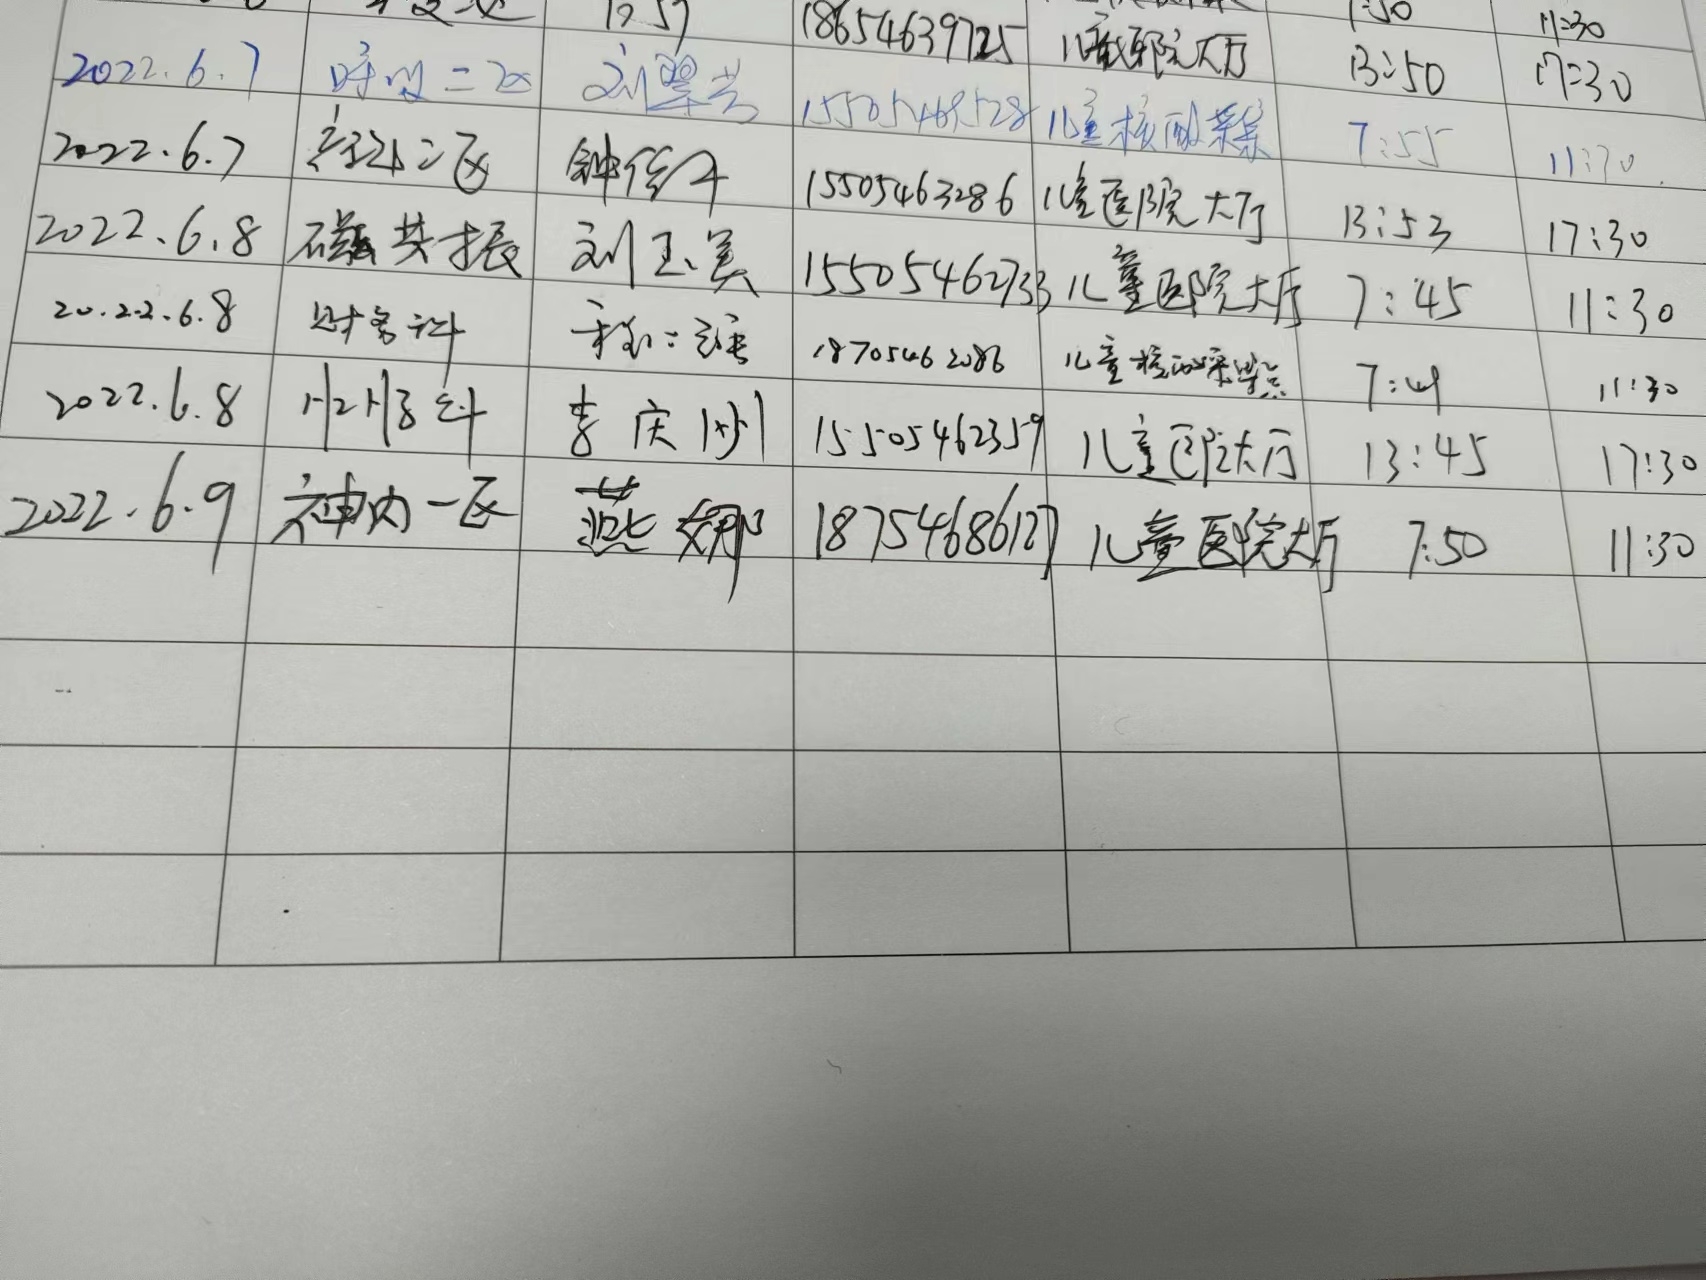 18654639725 儿童医院大厅 13:50 17:30
2022.6.7 呼吸二区 刘翠兰 15505469528 儿童核酸采集 7:55 11:30
2022.6.7 二区 钟 15505463286 儿童医院大厅 13:53 17:30
2022.6.8 磁共振 刘玉美 15505462733 儿童医院大厅 7:45 11:30
2022.6.8 财务科 18705462086 儿童核酸采集点 7:49 11:30
2022.6.8 科 李庆 15505462359 儿童医院大厅 13:45 17:30
2022.6.9 神内一区 燕娜 18754686127 儿童医院大厅 7:50 11:30